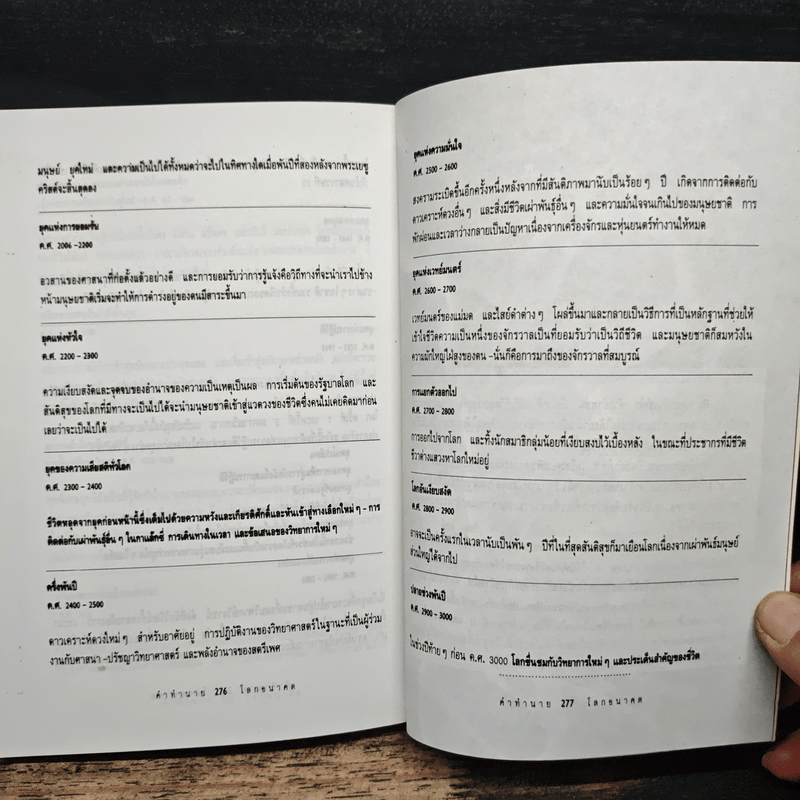 มนุษย์ ยุคใหม่ และความเป็นไปได้ทั้งหมดว่าจะไปในทิศทางใดเมื่อพันปีที่สองหลังจากพระเยซู
คริสต์จะสิ้นสุดลง
ยุคแห่งการยอมรับ
ค.ศ. 2006 -2200
อวสานของศาสนาที่ก่อตั้งแล้วอย่างดี และการยอมรับว่าการรู้แจ้งคือวิถีทางที่จะนำเราไปข้าง
หน้ามนุษยชาติเริ่มจะทำให้การดำรงอยู่ของตนมีสาระขึ้นมา
ยุคแห่งหัวใจ
ค.ศ. 2200 - 2300
ความเงียบสงัดและจุดจบของอำนาจของความเป็นเหตุเป็นผล การเริ่มต้นของรัฐบาลโลก และ
สันติสุขของโลกที่มีทางจะเป็นไปได้จะนำมนุษยชาติเข้าสู่แวดวงของชีวิตซึ่งคนไม่เคยคิดมาก่อน
เลยว่าจะเป็นไปได้
ยุคของความเสียสติทั่วโลก
ค.ศ. 2300 - 2400
ชีวิตหลุดจากยุคก่อนหน้านี้ซึ่งเต็มไปด้วยความหวังและเกียรติศักดิ์และหันเข้าสู่ทางเลือกใหม่ๆ - การ
ติดต่อกับเผ่าพันธุ์อื่นๆ ในกาแล็กซี่ การเดินทางในเวลา และข้อเสนอของวิทยาการใหม่ๆ
ครึ่งพันปี
ค.ศ. 2400 - 2500
ดาวเคราะห์ดวงใหม่ๆ สำหรับอาศัยอยู่ การปฏิบัติงานของวิทยาศาสตร์ในฐานะที่เป็นผู้ร่วม
งานกับศาสนา -ปรัชญาวิทยาศาสตร์ และพลังอำนาจของสตรีเพศ
คำทำนาย 276 โลกอนาคต
ยุคแห่งความมั่นใจ
ค.ศ. 2500 - 2600
สงครามระเบิดขึ้นอีกครั้งหนึ่งหลังจากที่มีสันติภาพมานับเป็นร้อยๆ ปี เกิดจากการติดต่อกับ
ดาวเคราะห์ดวงอื่นๆ และสิ่งมีชีวิตเผ่าพันธุ์อื่นๆ และความมั่นใจจนเกินไปของมนุษยชาติ การ
พักผ่อนและเวลาว่างกลายเป็นปัญหาเนื่องจากเครื่องจักรและหุ่นยนต์ทำงานให้หมด
ยุคแห่งเวทย์มนตร์
ค.ศ. 2600 - 2700
เวทย์มนตร์ของแม่มด และไสย์ดำต่างๆ โผล่ขึ้นมาและกลายเป็นวิธีการที่เป็นหลักฐานที่ช่วยให้
เข้าใจชีวิตความเป็นหนึ่งของจักรวาลเป็นที่ยอมรับว่าเป็นวิถีชีวิต และมนุษยชาติก็สมหวังใน
ความมักใหญ่ใฝ่สูงของตน -นั่นก็คือการมาถึงของจักรวาลที่สมบูรณ์
การแยกตัวออกไป
ค.ศ. 2700 - 2800
การออกไปจากโลก และทิ้งนักสมาธิกลุ่มน้อยที่เงียบสงบไว้เบื้องหลัง ในขณะที่ประชากรที่มีชีวิต
ชีวาต่างแสวงหาโลกใหม่อยู่
โลกอันเงียบสงัด
ค.ศ. 2800 - 2900
อาจจะเป็นครั้งแรกในเวลานับเป็นพันๆ ปีที่ในที่สุดสันติสุขก็มาเยือนโลกเนื่องจากเผ่าพันธ์มนุษย์
ส่วนใหญ่ได้จากไป
ปลายช่วงพันปี
ค.ศ. 2900 - 3000
ในช่วงปีท้ายๆ ก่อน ค.ศ. 3000 โลกชื่นชมกับวิทยาการใหม่ๆ และประเด็นสำคัญของชีวิต
คำทำนาย 277 โลกอนาคต